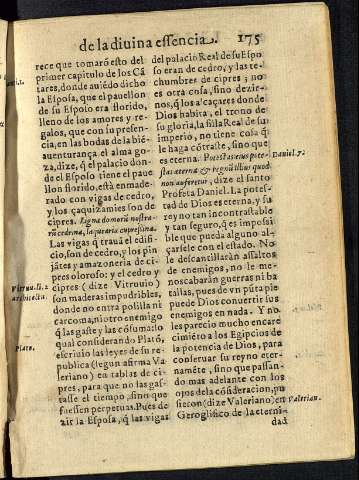 de la diuina essencia.
175
rece que tomarõ esto del
primer capitulo de los Cã
tares, donde auiédo dicho
la Esposa, que el pauellon
de su Esposo era florido,
lleno de los amores y re-
galos, que con su presen-
cia, en las bodas de la bié-
auenturança el alma go-
za, dize, q̃ el palacio don-
de el Esposo tiene el paue
llon florido, està enmade-
rado con vigas de cedro,
y los çaquizamies son de
cipres. Ligna domorũ nostra-
rũ cedrina, laquearia cupressina.
Las vigas q̃ trauã el edifi-
cio, son de cedro, y los pin
jãtes y amazoneria de ci-
pres oloroso: y el cedro y
cipres (dize Vitruuio)
son maderas impudribles,
donde no entra polilla ni
carcoma, ni otro enemigo
q̃ las gaste y las cõsuma: lo
qual considerando Platõ,
escriuio las leyes de su re-
publica (segun afirma Va-
leriano) en tablas de ci-
pres, para que no las gas-
tasse el tiempo, sino que
fuessen perpetuas. Pues de
zir la Esposa, q̃ las vigas
Vitruu. li. 2
architecta.
Plato.
del palacio Real de su Espo
so eran de cedro, y las te-
chumbres de cipres; no
es otra cosa, sino dezir-
nos, q̃ los açaçares donde
Dios habita, el trono de
su gloria, la silla Real de su
imperio, no tiene cosa q̃
le haga cõtraste, sino que
es eterna. Potestas eius pote-
stas æterna & regnũ illius quod
non auferetur, dize el santo
Profeta Daniel. La potes-
tad de Dios es eterna, y su
reyno tan incontrastable
y tan seguro, q̃ es imposi
ble que pueda alguno al-
çarsele con el estado. No
le descantillarán assaltos
de enemigos, no le me-
noscabarán guerras ni ba
tallas, pues de vn puñta pie
puede Dios conuertir sus
enemigos en nada. Y no
les parecio mucho encare
cimiẽto a los Egipcios de
la potencia de Dios, para
conseruar su reyno eter-
namẽte, sino que passan-
do mas adelante con los
ojos de la cõsideracion, pu
sieron (dize Valeriano) en
Geroglifico de la eterni-
dad
Daniel. 7.
Valerian.